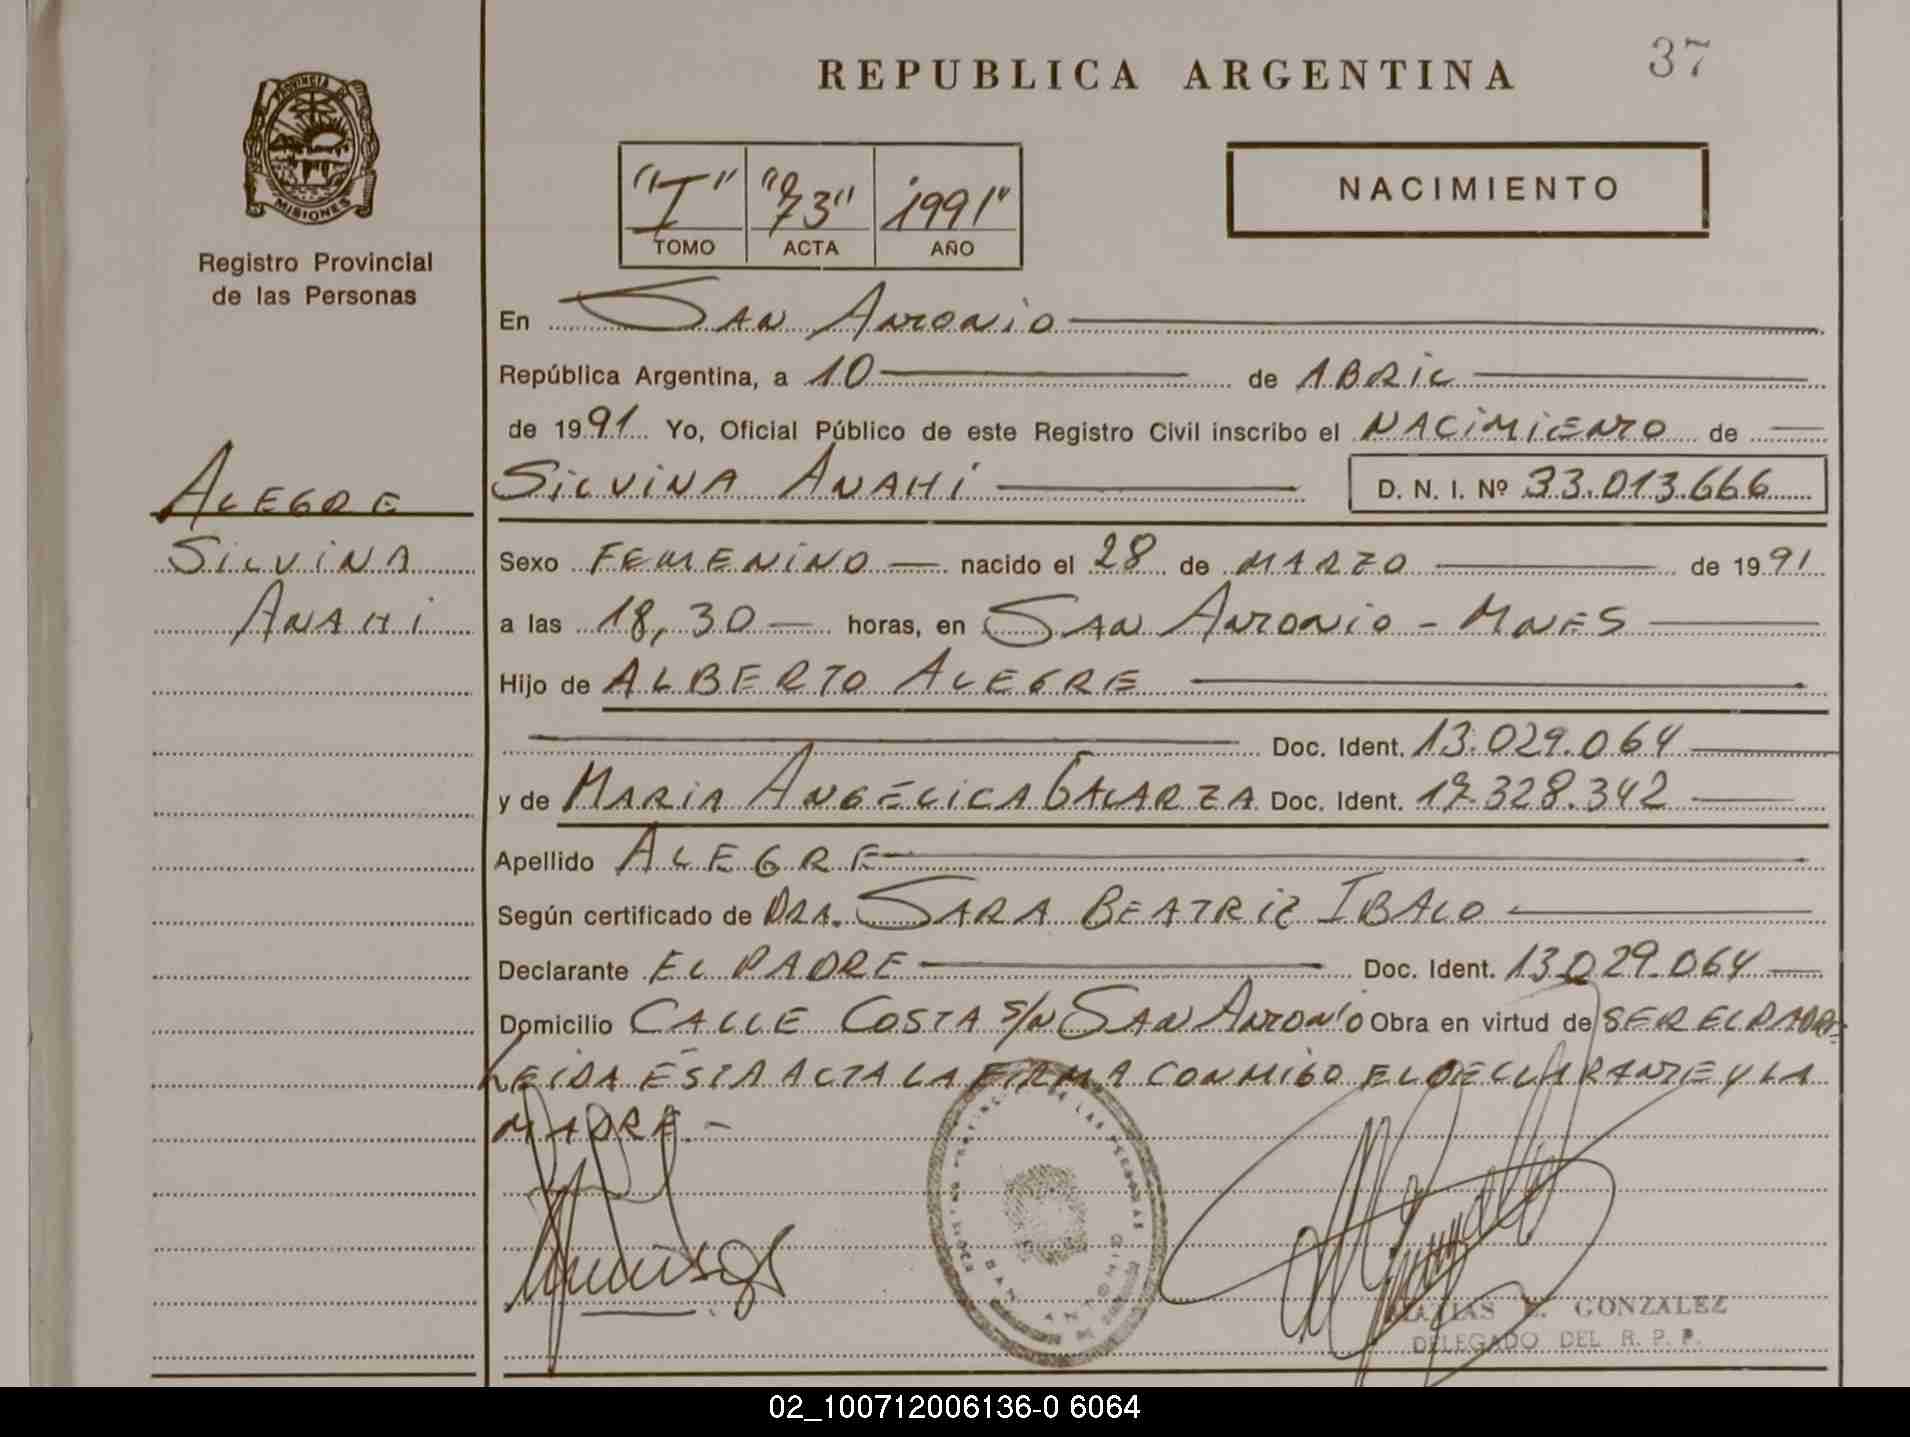 37
REPUBLICA ARGENTINA
PROVINCIA DE
MISIONES
Registro Provincial
de las Personas
"I" "73" "1991"
TOMO ACTA AÑO
NACIMIENTO
En San Antonio
República Argentina, a 10 de ABRIL
de 1991 Yo, Oficial Público de este Registro Civil inscribo el NACIMIENTO de
SILVINA ANAHI D. N. I. Nº 33.013.666
ALEGRE
SILVINA
ANAHI
Sexo FEMENINO nacido el 28 de MARZO de 1991
a las 18,30 horas, en SAN ANTONIO - MNES
Hijo de ALBERTO ALEGRE
Doc. Ident. 13.029.064
y de MARIA ANGÉLICA GALARZA Doc. Ident. 17.328.342
Apellido ALEGRE
Según certificado de DRA. SARA BEATRIZ IBALO
Declarante EL PADRE Doc. Ident. 13.029.064
Domicilio CALLE COSTA S/N SAN ANTONIO Obra en virtud de SER EL PADRE
LEIDA ÉSTA ACTA LA FIRMA CONMIGO EL DECLARANTE Y LA
MADRE.-
GONZALEZ
DELEGADO DEL R. P. P.
02_100712006136-0 6064